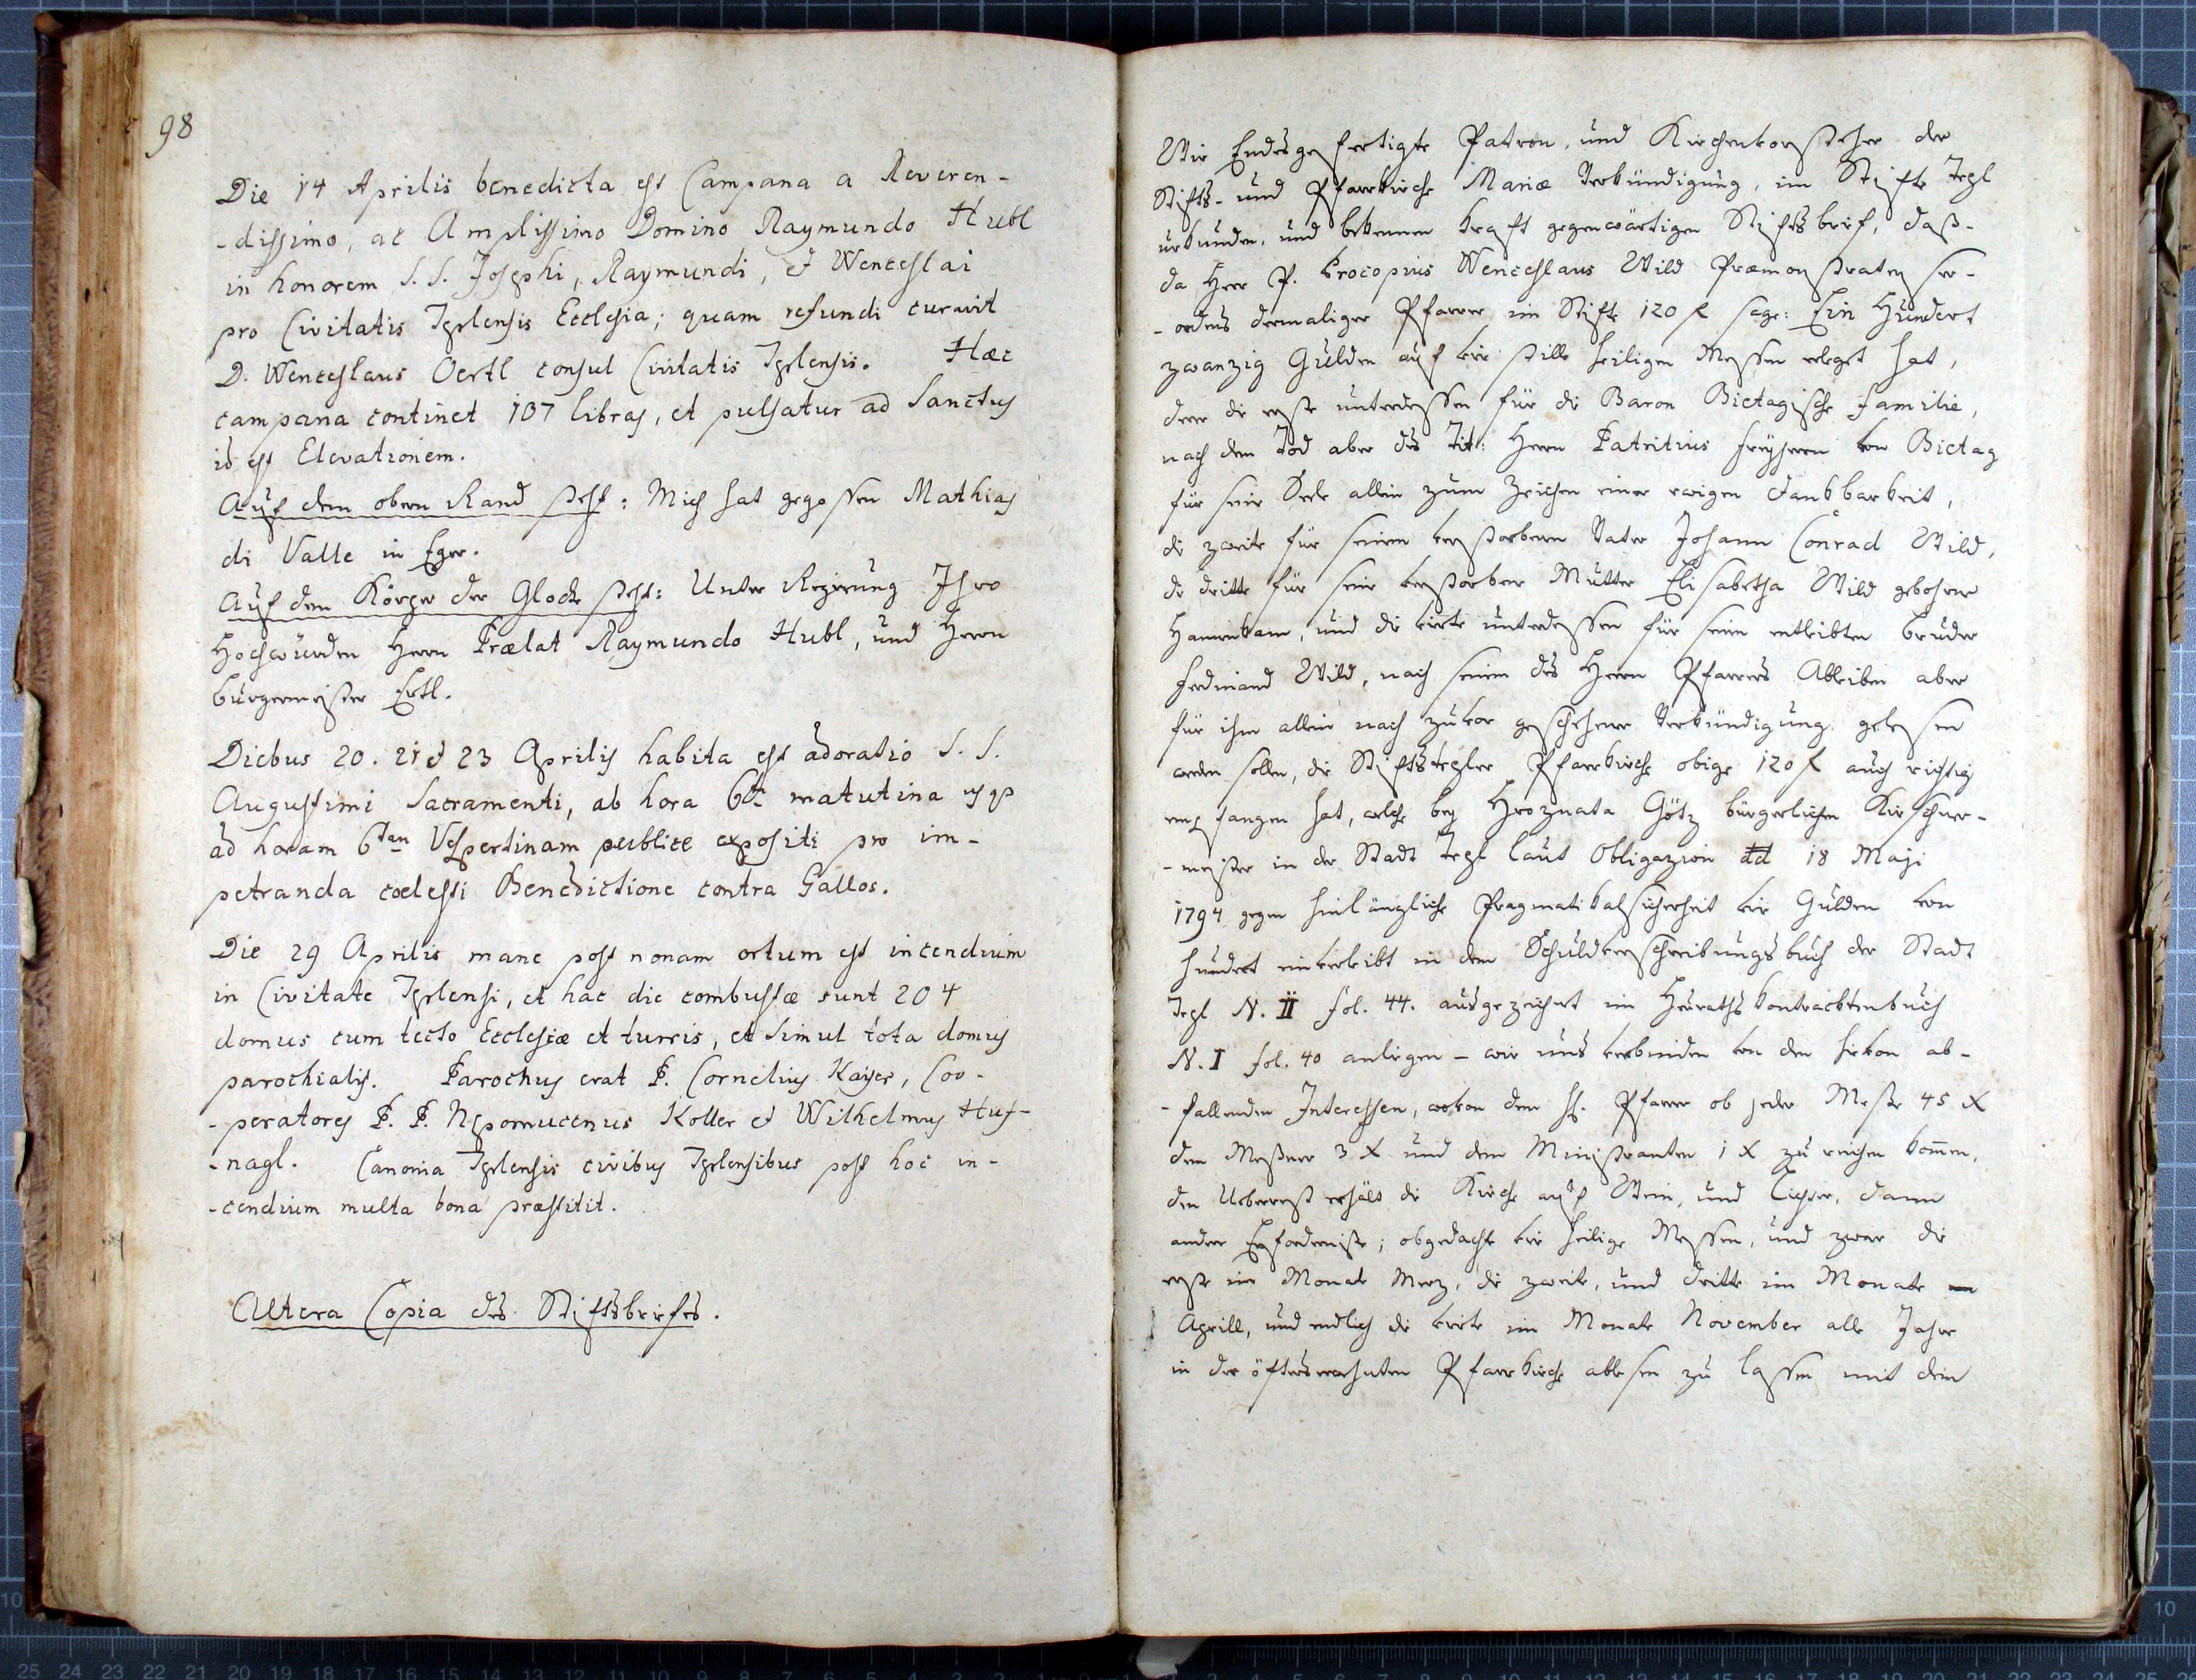 98
Die 14 Aprilis benedicta est Campana a Reveren-
-dissimo, ac Amplissimo Domino Raymundo Hubl
in honorem S. S. Josephi, Raymundi, et Wenceslai
pro Civitatis Teplensis Ecclesia; quam refundi curavit
D. Wenceslaus Oertl consul Civitatis Teplensis. Hæc
campana continet 107 libras, et pulsatur ad Sanctus
id est Elevationem.
Auf dem obern Rand steht: Mich hat gegossen Mathias
di Valle in Eger.
Auf dem Körper der Glocke steht: Unter Regirung Ihro
Hochwürden Herrn Prælat Raymundo Hubl, und Herrn
Bürgermeister Ertl.
Diebus 20. 21 et 23 Aprilis habita est adoratio S. S.
Augustimi Sacramenti, ab hora 6ta matutina usq
ad horam 6tam Vespertinam publice expositi pro im-
petranda coelesti Benedictione contra Gallos.
Die 29 Aprilis mane post nonam ortum est incendium
in Civitate Teplensi, et hac die combustæ sunt 204
domus cum tecto Ecclesiæ et turris, et simul tota domus
parochialis. Parochus erat P. Cornelius Kayser, Coo-
-peratores P. P. Nepomucenus Koller et Wilhelmus Huf-
-nagl. Canonia Teplensis civibus Teplensibus post hoc in-
-cendium multa bona præstitit.
Altera Copia des Stiftsbriefes.
Wir Endesgefertigte Patron, und Kirchenvorsteher der
Stifts- und Pfarrkirche Mariæ Verkündigung, im Stifte Tepl
urkunden, und bekennen kraft gegenwärtigen Stiftsbrief, daß-
da Herr P. Procopius Wenceslaus Wild Præmonstratenser-
-ordens dermaliger Pfarrer im Stifte 120 f sage: Ein Hundert
zwanzig Gulden auf vier stille heiligen Messen erleget hat,
derer die erste unterdessen für die Baron Bietagische Familie,
nach dem Tod aber des Tit: Herrn Patritius Freyherrn von Bietag
für seine Seele allein zum Zeichen einer ewigen Dankbarkeit,
die zweite für seinen verstorbenen Vater Johann Conrad Wild,
die dritte für seine verstorbene Mutter Elisabetha Wild gebohrne
und die vierte unterdessen für seinen entleibten Bruder
Ferdinand Wild, nach seinem des Herrn Pfarrers Ableiben aber
für ihm allein nach zuvor geschehener Verkündigung gelesen
werden sollen, die Stiftstepler Pfarrkirche obige 120 f auch richtig
empfangen hat, welche bey Hroznata Götz bürgerlichen Kirschner-
-meister in der Stadt Tepl laut Obligazion dd 18 Maji
1794 gegen hinlängliche Pragmatikalsicherheit vier Gulden von
hundert einverleibt in dem Schuldverschreibungsbuch der Stadt
Tepl N. II fol. 44. ausgezeichnet im Heurathskontracktenbuch
N. I fol. 40 anligen - wir uns verbinden von den hievon ab-
-fallenden Interessen, wovon dem H. Pfarrer ob jeder Messe 45 x
dem Meßner 3 x und dem Ministranten 1 x zu reichen kom̄en,
den Ueberrest erhält die Kirche auf Wein, und Lichter, dann
andere Erforderniße; obgedachte vier heilige Messen, und zwar die
erste im Monate Merz, die zweite, und dritte im Monate
Aprill, und endlich die vierte im Monate November alle Jahre
in der öfterserwehnten Pfarrkirche ablesen zu lassen mit dem